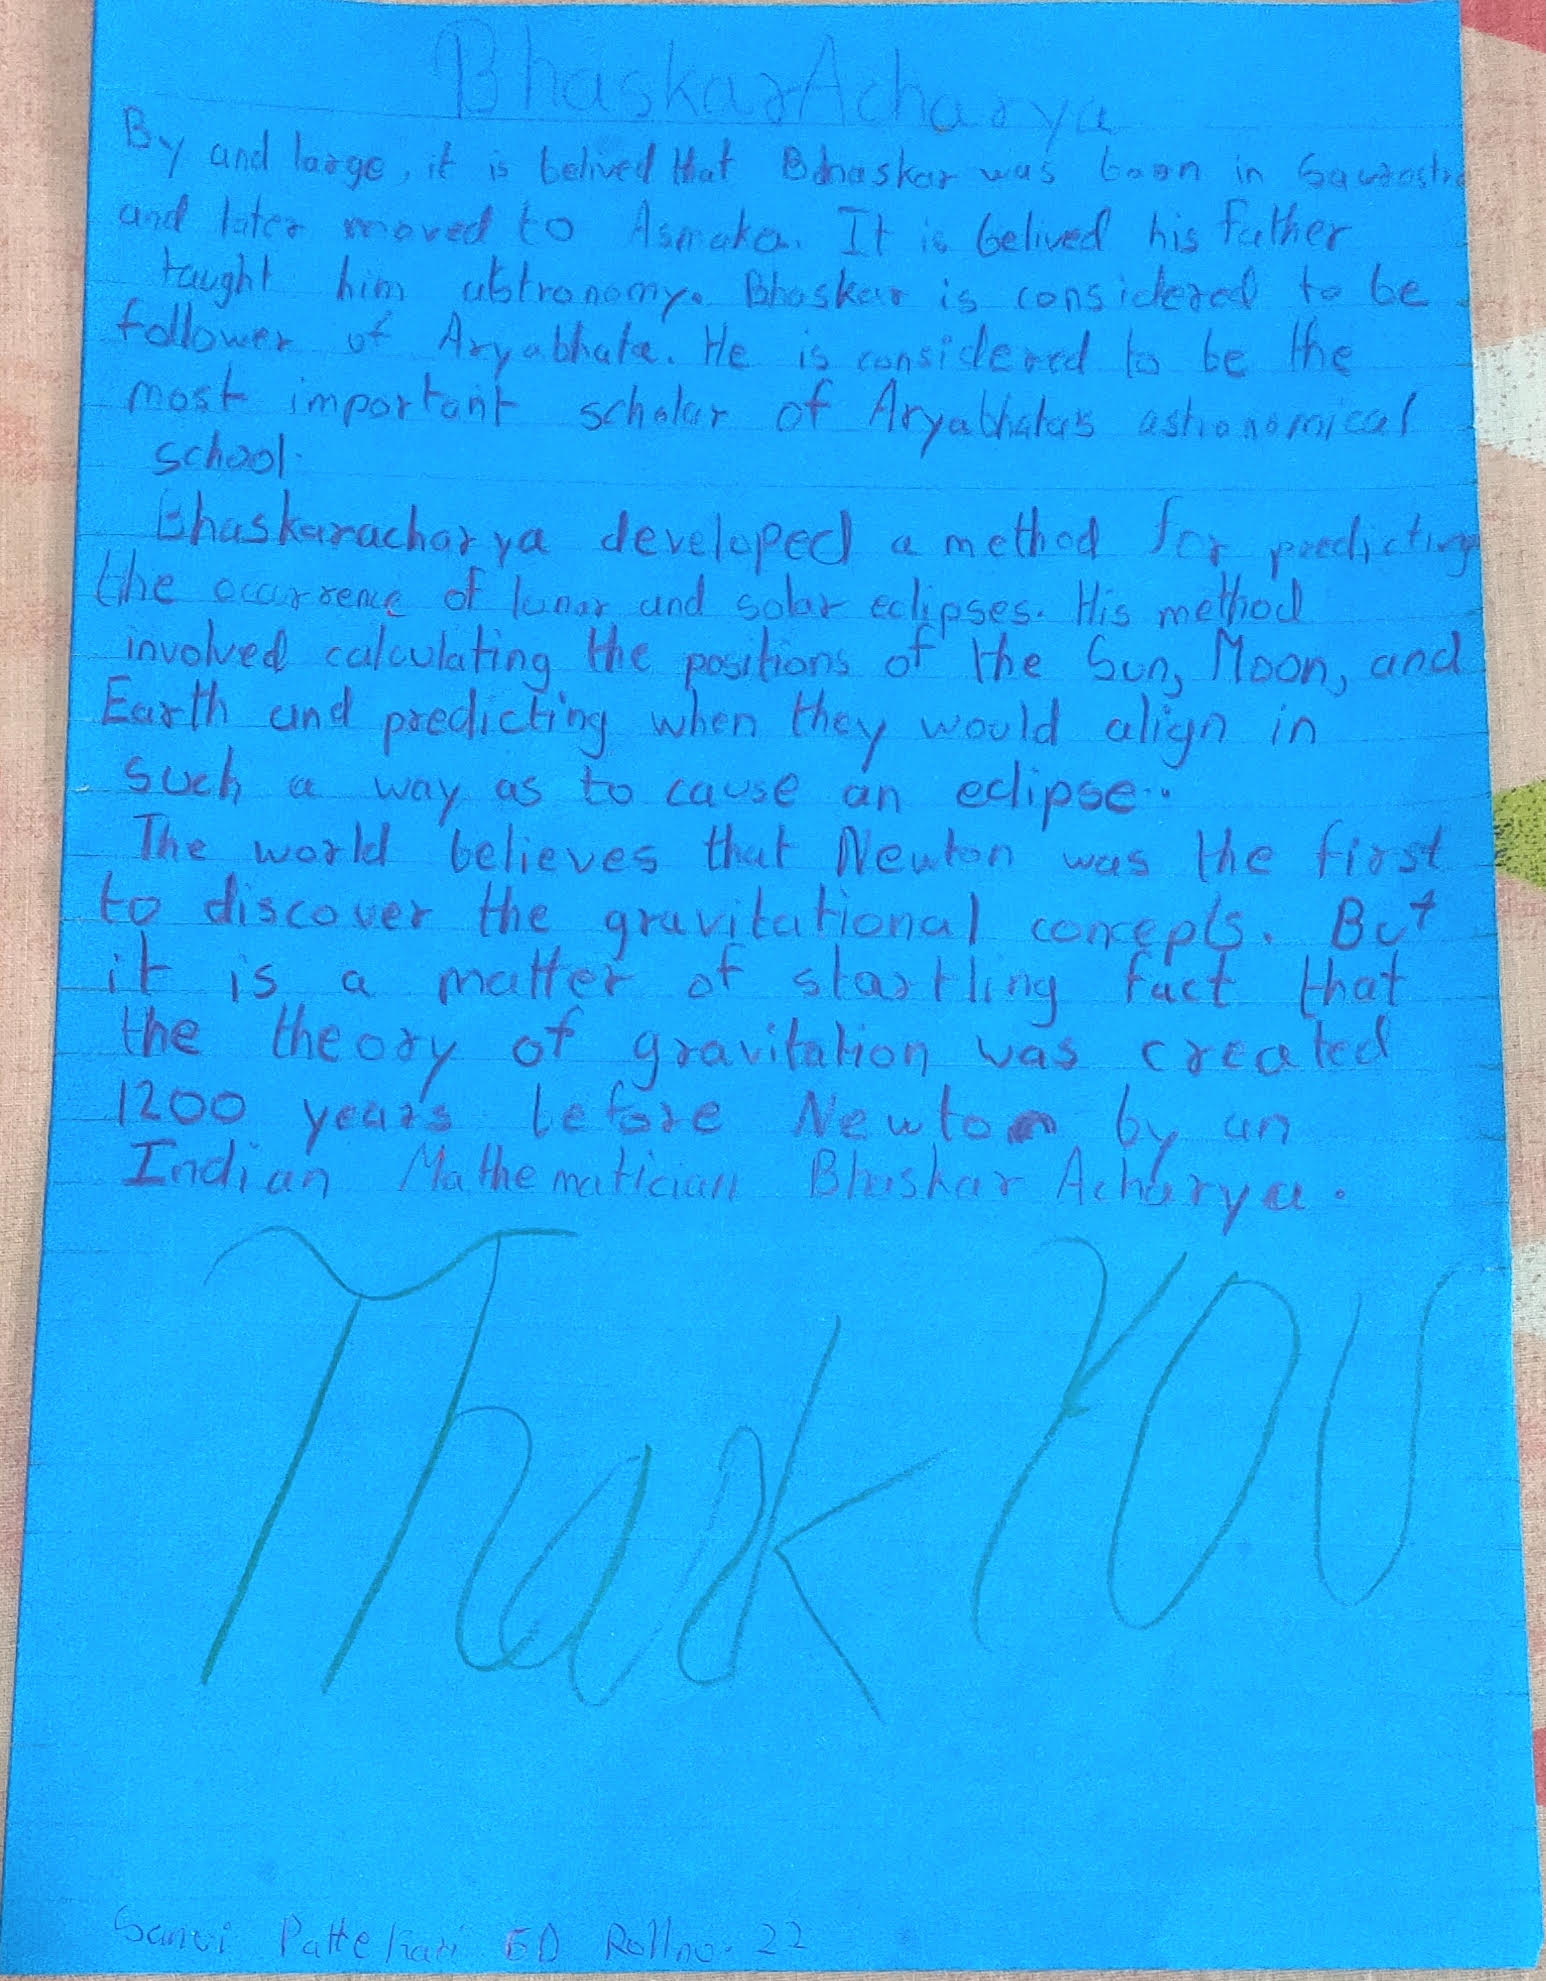 BhaskarAcharya
By and large, it is belived that Bhaskar was born in Saurastra
and later moved to Asmaka. It is belived his father
taught him abtronomy. Bhaskar is considered to be
follower of Aryabhata. He is considered to be the
most important scholar of Aryabhata's astronomical
school.
Bhaskaracharya developed a method for predicting
the occurrence of lunar and solar eclipses. His method
involved calculating the positions of the Sun, Moon, and
Earth and predicting when they would align in
such a way as to cause an eclipse..
The world believes that Newton was the first
to discover the gravitational concepts. But
it is a matter of startling fact that
the theory of gravitation was created
1200 years before Newton by an
Indian Mathematician Bhaskar Acharya.
Thank YOU
Sanvi 6D Rollno. 22